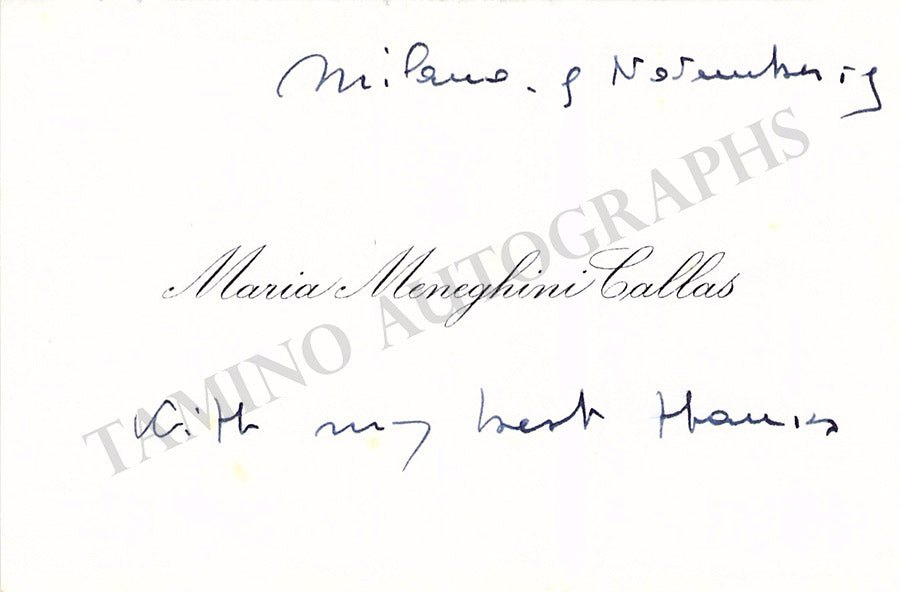 Milano. 9 November 19
Maria Meneghini Callas
TAMINO AUTOGRAPHS
With my best thanks